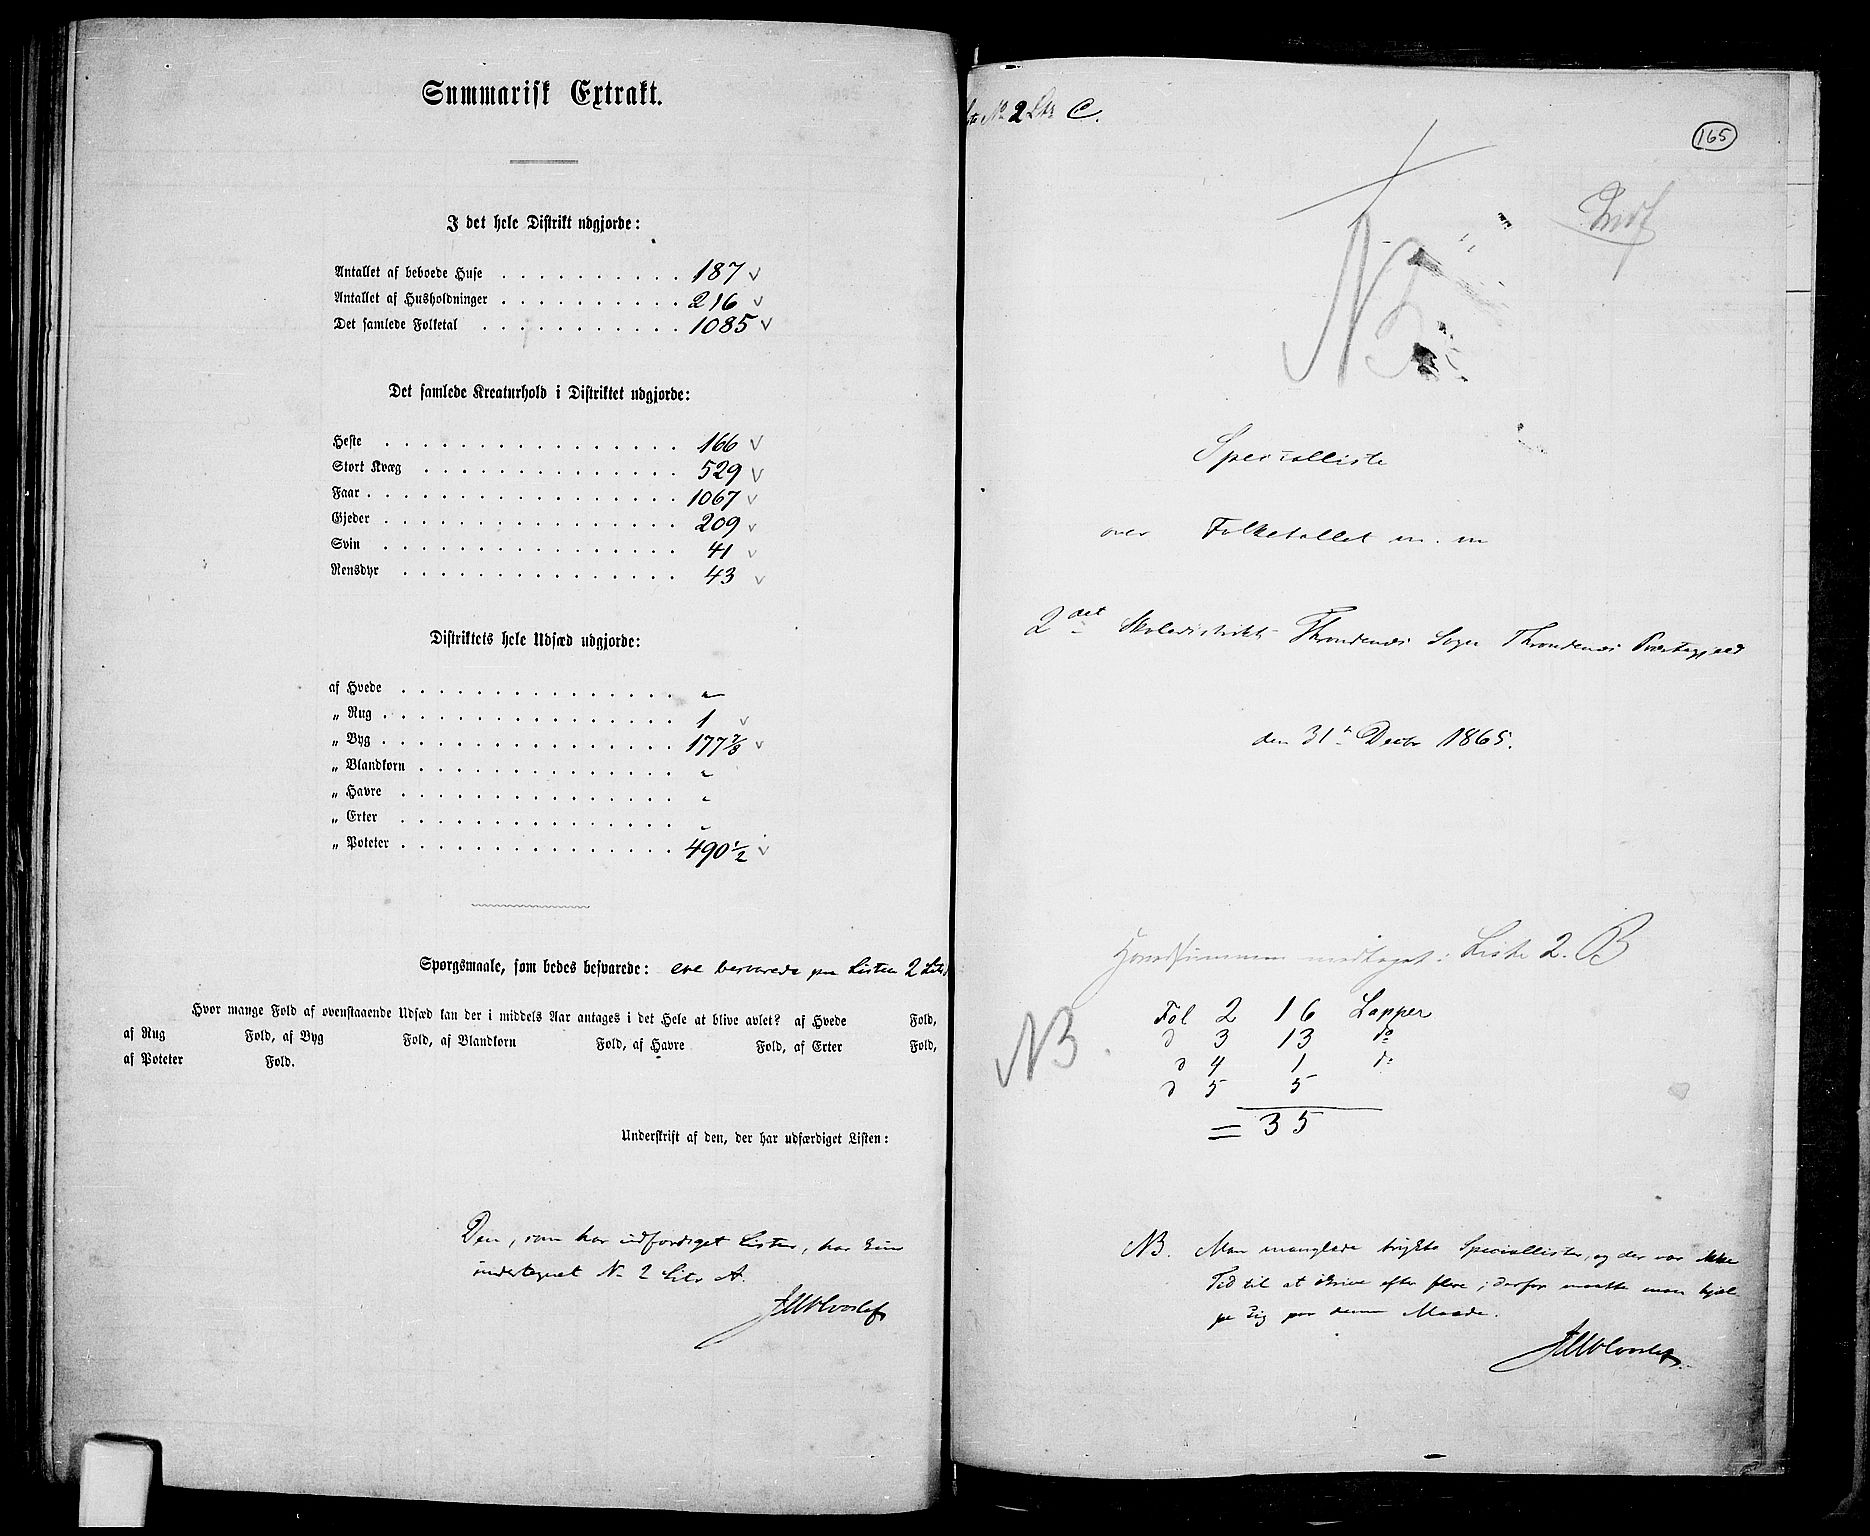 Summarisk Extrakt.
I det hele Distrikt udgjorde:
Antallet af beboede Huse . . . . . . . . . . 187 ✓
Antallet af Husholdninger . . . . . . . . . . 216 ✓
Det samlede Folketal . . . . . . . . . . . 1085 ✓
Det samlede Kreaturhold i Distriktet udgjorde:
Heste . . . . . . . . . . . . . . 166 ✓
Stort Kvæg . . . . . . . . . . . . 529 ✓
Faar . . . . . . . . . . . . . . . 1067 ✓
Gjeder . . . . . . . . . . . . . . 209 ✓
Svin . . . . . . . . . . . . . . 41 ✓
Rensdyr . . . . . . . . . . . . . 43 ✓
Distriktets hele Udsæd udgjorde:
af Hvede . . . . . . . . . . . . . "
„ Rug . . . . . . . . . . . . . . 1 ✓
„ Byg . . . . . . . . . . . . . . 177 7/8 ✓
„ Blandkorn . . . . . . . . . . . . "
„ Havre . . . . . . . . . . . . . "
„ Erter . . . . . . . . . . . . . "
„ Poteter . . . . . . . . . . . . . 490 1/2 ✓
Spørgsmaale, som bedes besvarede: ere besvarede paa Listen 2 Litr
Hvor mange Fold af ovenstaaende Udsæd kan der i middels Aar antages i det Hele at blive avlet? af Hvede Fold,
af Rug Fold, af Byg Fold, af Blandkorn Fold, af Havre Fold, af Erter Fold,
af Poteter Fold.
Underskrift af den, der har udfærdiget Listen:
Den, som har udfærdiget Listen, har kun
undertegnet No 2 Litr A.
No 2 Litr C.
165
NB
Specialliste
over Folketallet m. m
2det Skoledistrikt Throndenæs Sogn Throndenæs Præstegjeld
den 31te Decbr 1865.
medtaget i Liste 2. B
NB.
Fol 2 16 Lapper
d 3 13 do
d 4 1 do
d 5 5
= 35
NB. Man manglede trykte Speciallister, og der var ikke
Tid til at skrive efter flere; derfor maatte man hjæl-
pe sig paa denne Maade.